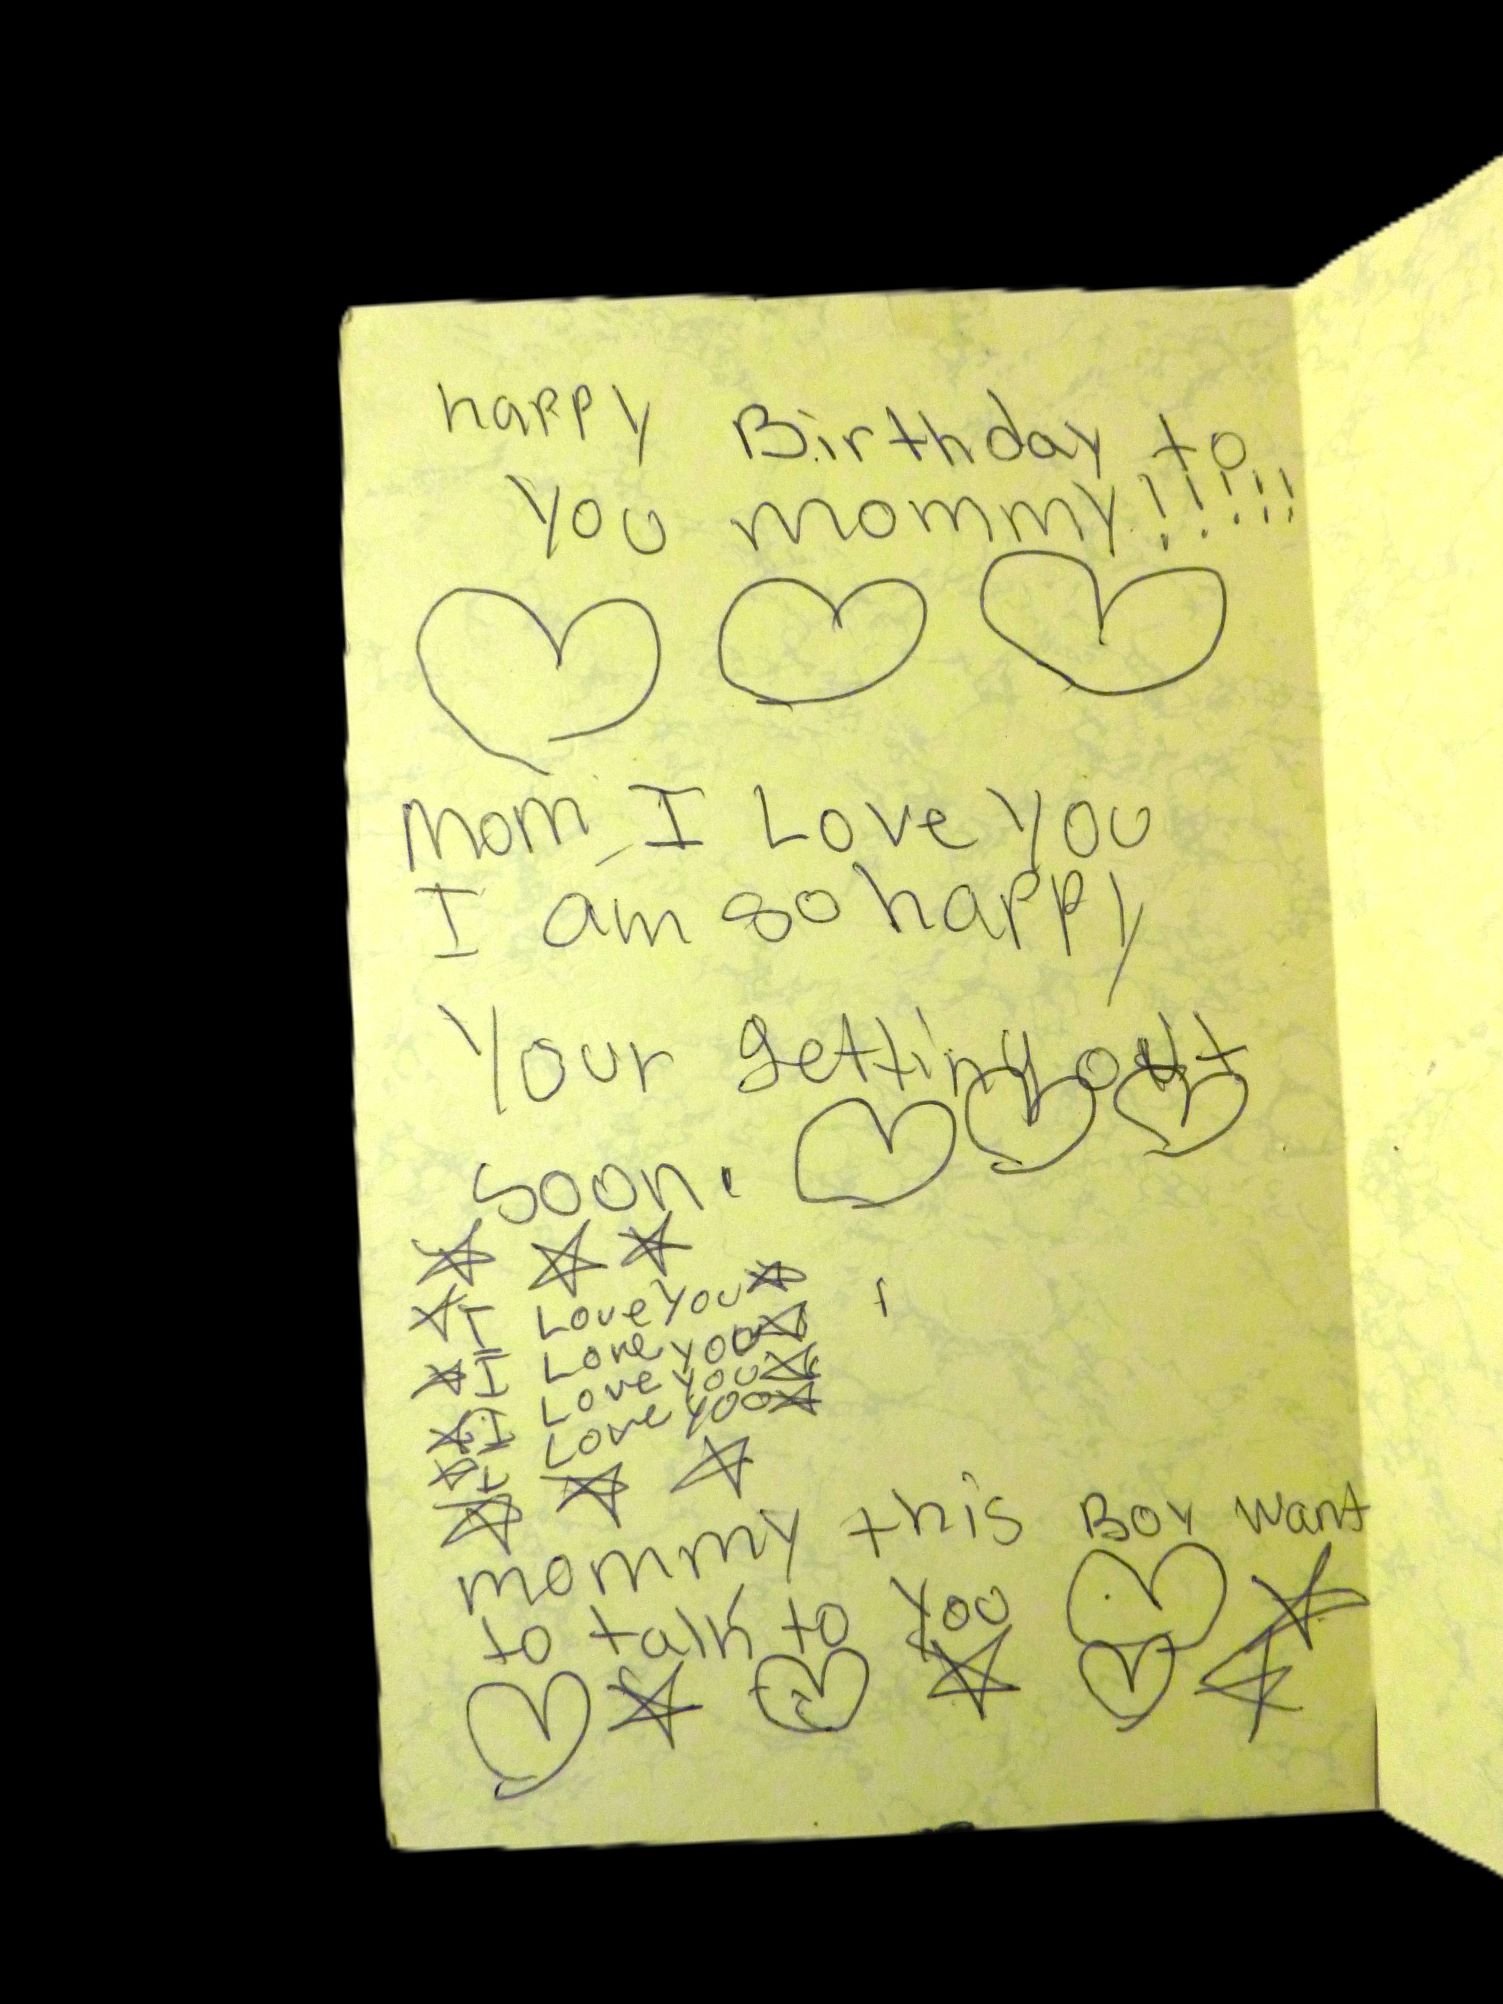 happy Birthday to
you mommy!!!!!
Mom, I Love you
I am so happy
Your getting out
soon.
I Love You
I Love you
I Love you
I Love you
mommy this Boy want
to talk to you